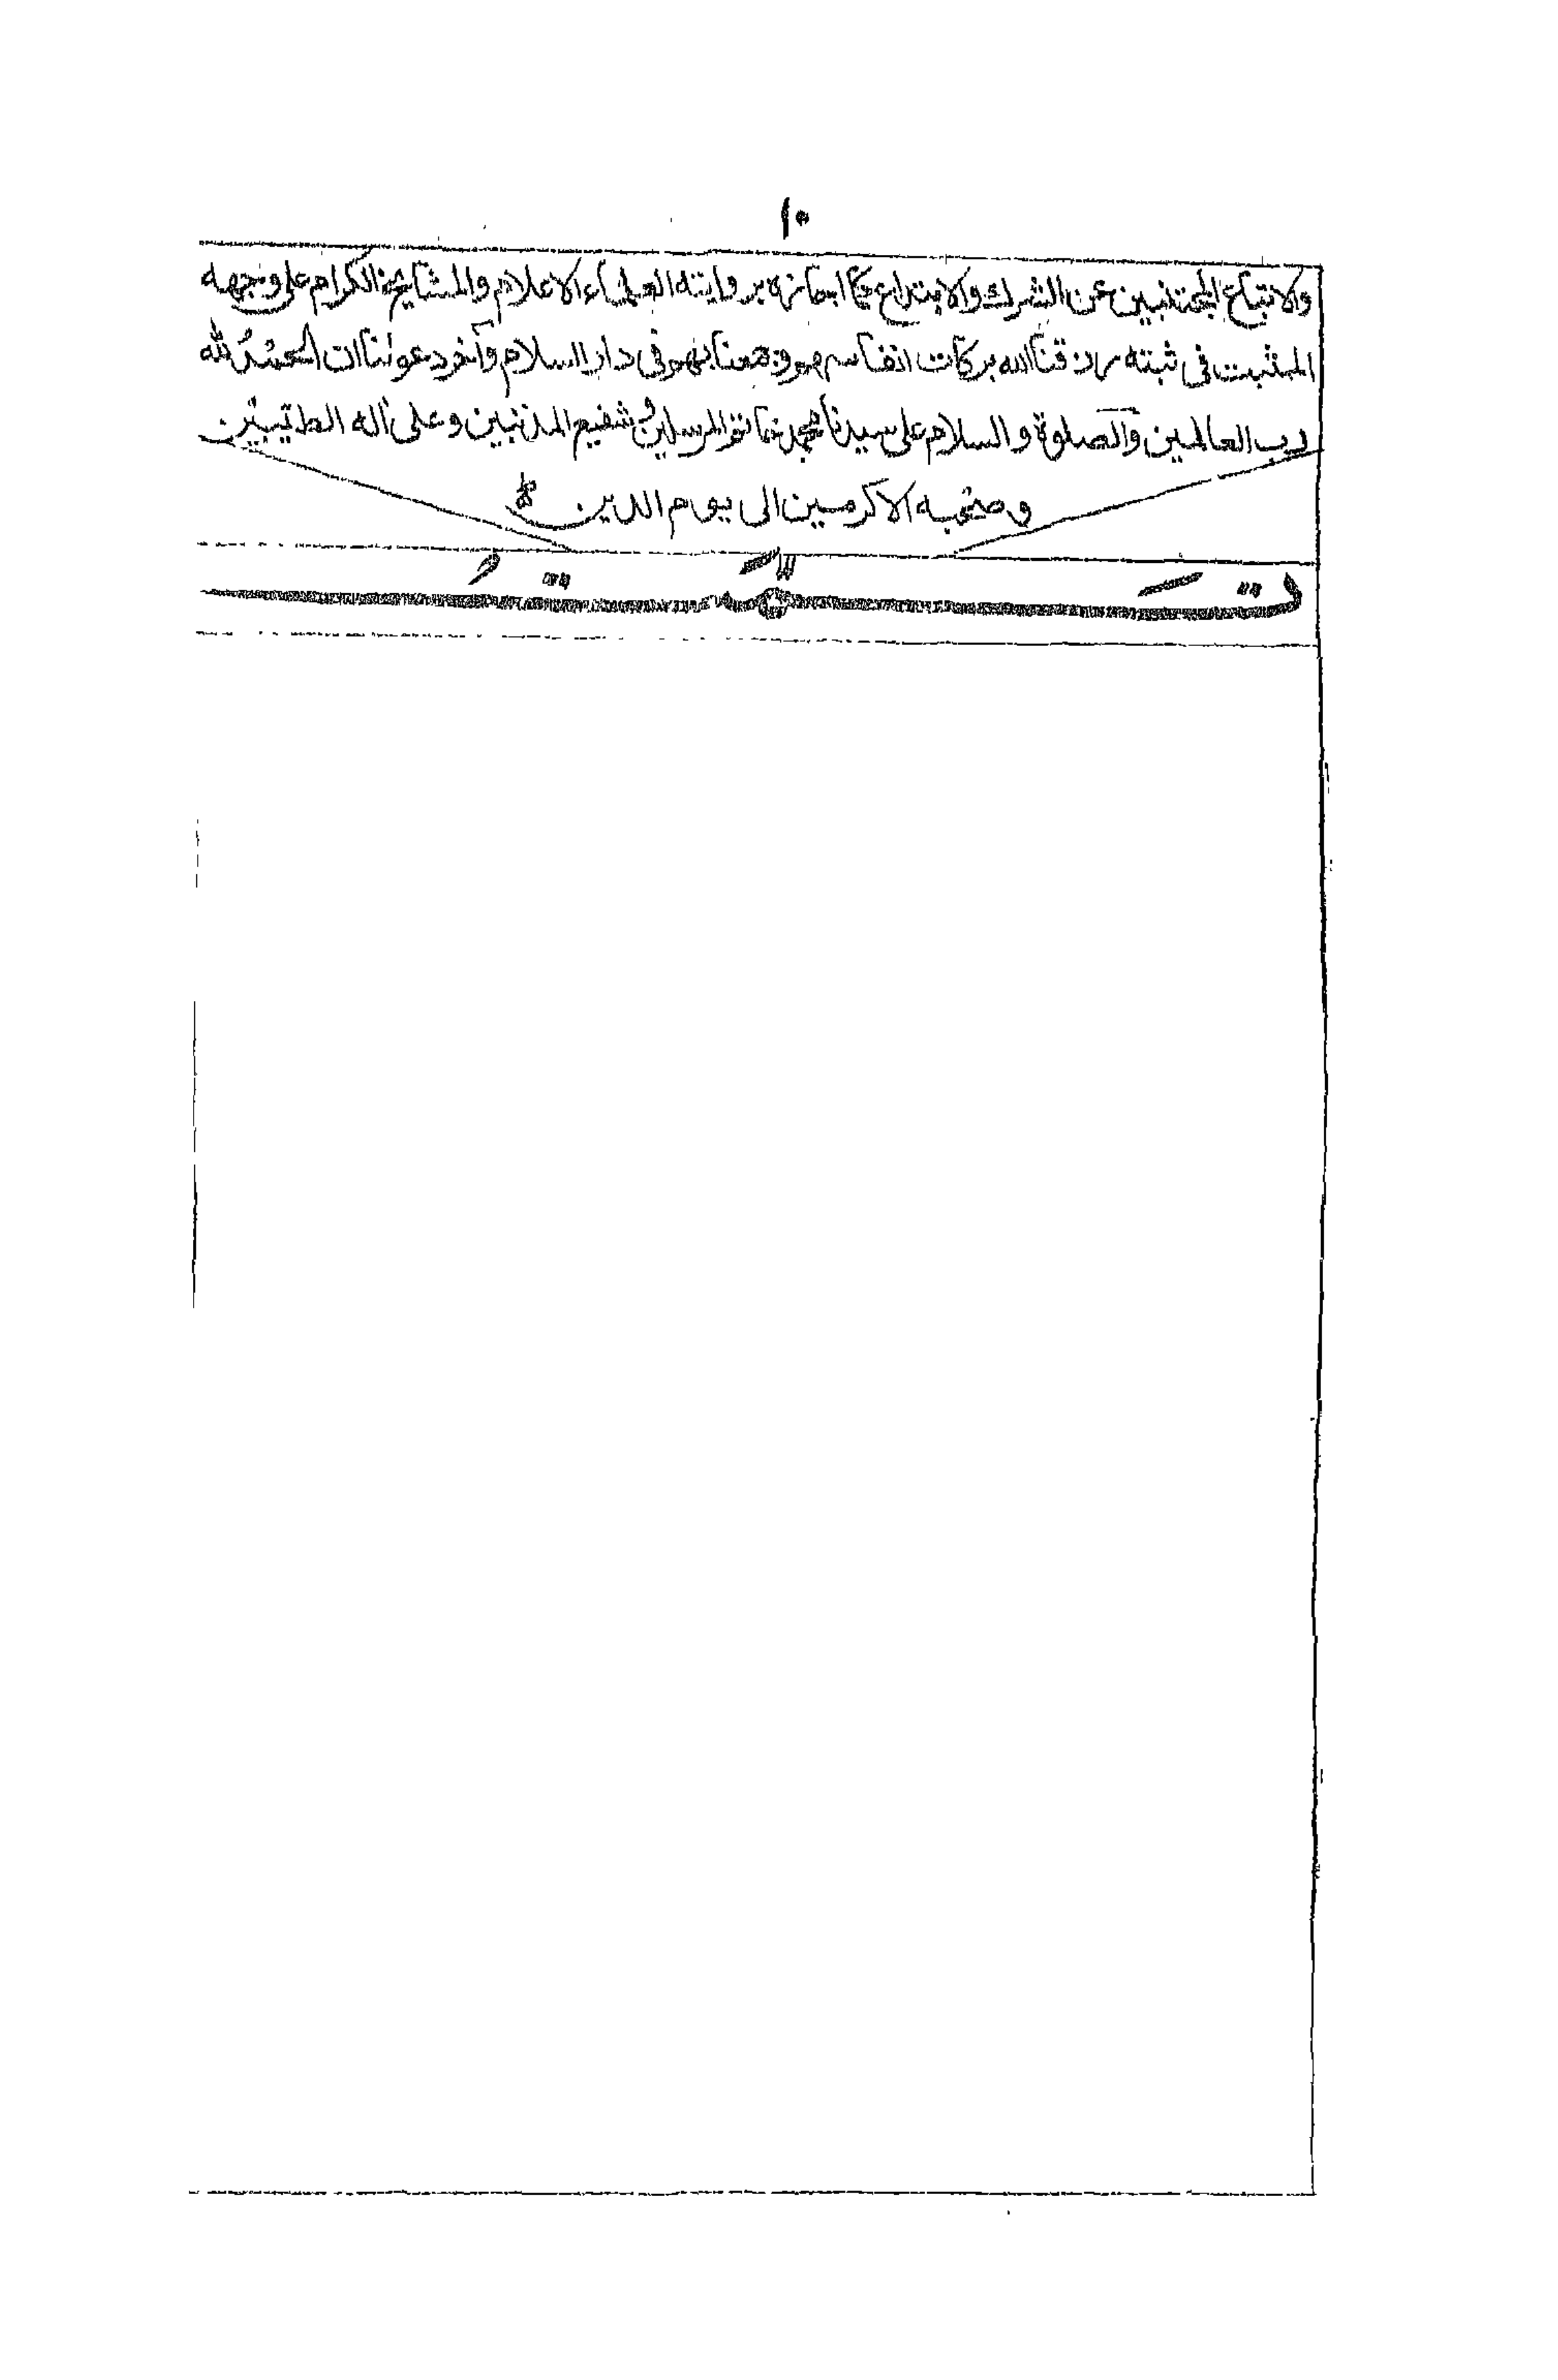 ١٠
والاتباع المجتنبين عن الشرك والابتداع مما اجازه بروايته العلماء الاعلام والمشايخ الكرام على وجهه
المثبت فى ثبته رزقنا الله بركات انفاسهم وجمعنا بهم فى دار السلام وآخر دعوٰنا ان الحمد لله
رب العالمين والصلوة والسلام على سيدنا محمد خاتم المرسلين وشفيع المذنبين وعلى آله الطيبين
وصحبه الاكرمين الى يوم الدين